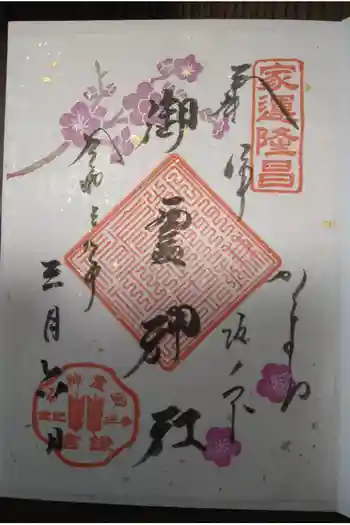 家運隆昌
奉拝
かまくら
坂ノ下
御霊神社
令和三年
三月六日